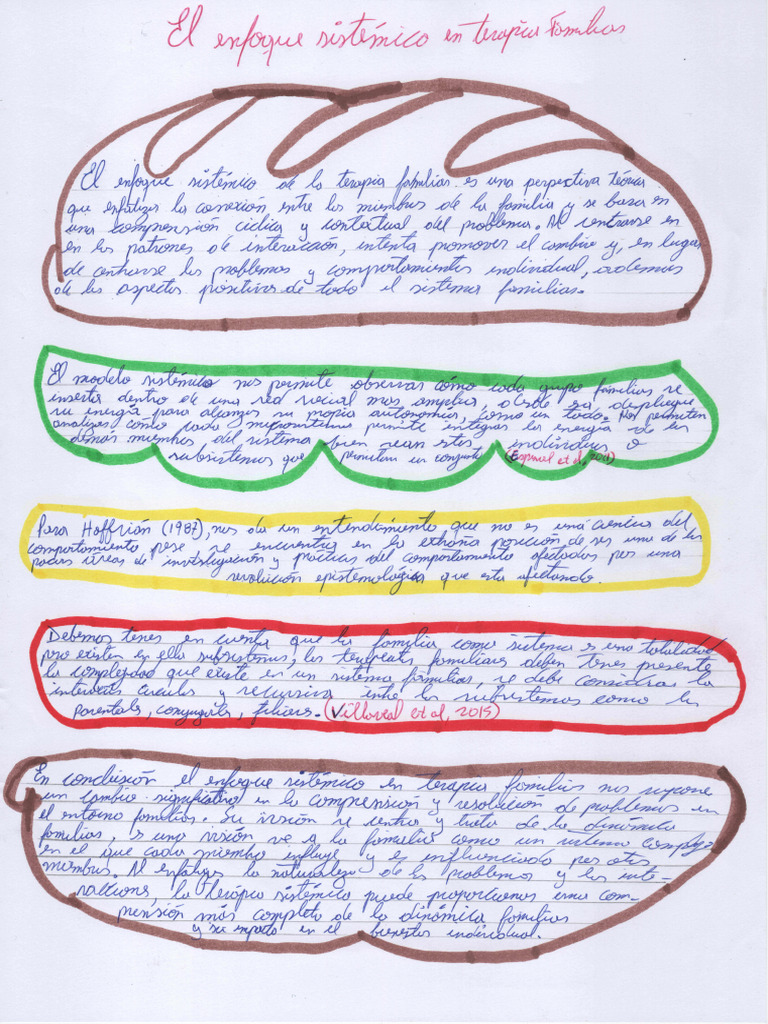 El enfoque sistémico en terapia Familiar
El enfoque sistémico de la terapia familiar es una perspectiva teórica
que enfatiza la conexión entre los miembros de la familia y se basa en
una comprensión cíclica y contextual del problema. Al centrarse en
en los patrones de interacción, intenta promover el cambio y, en lugar
de centrarse los problemas y comportamientos individual, además
de los aspectos positivos de todo el sistema familiar.
El modelo sistémico nos permite observar cómo cada grupo familiar se
inserta dentro de una red social más amplia, y desde su despliegue
su energía para alcanzar su propia autonomía, como un todo. Nos permiten
analizar cómo cada microsistema permite integrar la energía de los
demás miembros del sistema bien sean stes, individuos o
subsistemas que permitan un conjunto (Espinal et al, 2001)
Para Hoffrián (1987), nos da un entendimiento que no es una ciencia del
comportamiento pese se encuentra en la extraña posición de ser una de las
pocas áreas de investigación y prácticas del comportamiento afectadas por una
revolución epistemológica que esta afectando.
Debemos tener en cuenta que la familia como sistema es una totalidad
pero existen en ella subsistemas, los terapeuts familiares deben tener presente
la complejidad que existe en un sistema familiar, se debe considerar la
circular y recursiva entre los subsistemas como los
parentals, conyugals, filiares. (Villareal et al, 2015)
En conclusión el enfoque sistémico en terapia familiar nos supone
un cambio significativo en la comprensión y resolución de problemas en
el entorno familiar. Su visión se centra y trata de la dinámica
familiar, es una visión ve a la familia como un sistema complejo
en el que cada miembro influye y es influenciado por otros
miembros. Al enfocar la naturaleza de los problemas y las inte-
racciones, la terapia sistémica puede proporcionar una com-
prensión más completa de la dinámica familiar
y su impacto en el bienestar individual.